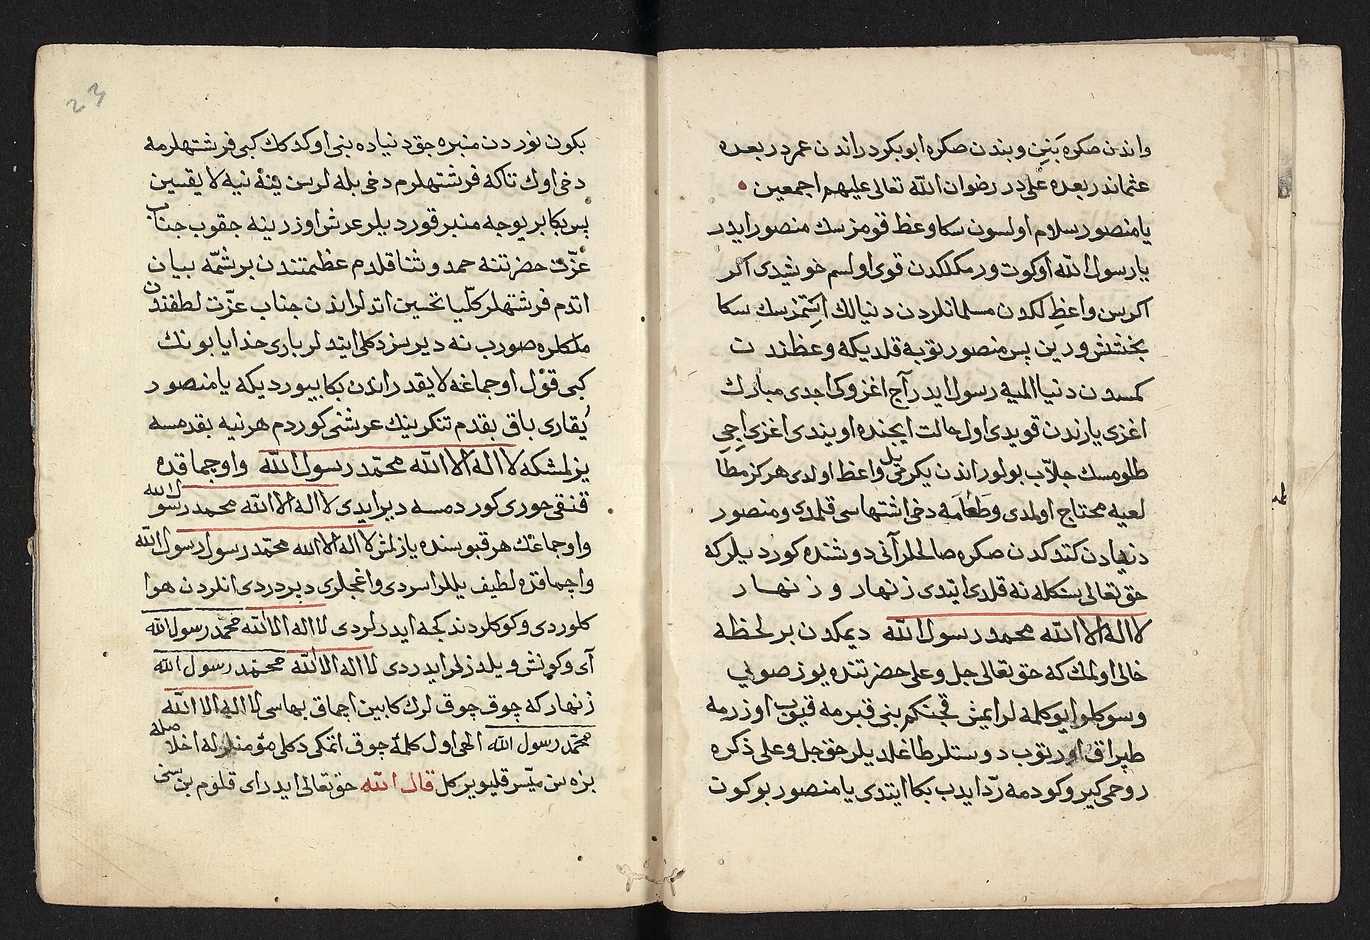 واندن صكره بَنِين وبندن صكره ابوبكردر اندن عمردر بعده
عثماندر بعده علىدر رضوان الله تعالى عليهم اجمعين
يا منصور سلام اولسون سكا وعظ قومزسك منصور ايدر
يا رسول الله اوكوت ورمكلكدن قوى اولسم خوشيدى اكر
اكرسن واعظلكدن مسلمانلردن دنيالك استمزسك سكا
بخشش ورين پس منصور توبه قلديكه وعظندن
كمسدن دنيا المليه رسول ايدر آج اغزوكى اجدى مبارك
اغزى يارندن قويدى اول حالت ايجنده اويندى اغزى ايچى
طلومسك جلاب بولور اندن يكرمى ييل واعظ اولدى هركز مطا
لعيه محتاج اولمدى وطعامه دخى اشتهاسى قلمدى ومنصور
دنيادن كتدكدن صكره صالحلر آنى دوشنده كورديلر كه
حق تعالى سنكله نه قلدى ايتدى زنهار وزنهار
لا اله الا الله محمد رسول الله ديمكدن بر لحظه
خالى اولمك كه حق تعالى جل وعلى حضرتنده يوز صويى
وسوكلو ايو كلمه لرايمش قچنكم بنى قبرمه قيوب اوزرمه
طپراق اورتوب دوستلر طاغلديلر حق جل وعلى ذكره
روحمى كيرو كودمه ردايدب بكا ايتدى يا منصور بو كوت
23
بكون نوردن منبره چق دنياده بنى اوكدكك كبى فرشتهلرمه
دخى اوك تاكه فرشتهلرم دخى بلهلر بن ينه نيه لايقسين
پس بكا بر يوجه منبر قورديلر عرش اوزرينه چقوب جناب
عزّت حضرتنه حمد وثنا قلدم عظمتندن بر شمّه بيان
اتدم فرشتهلر كلّيا تحسين اتدلر اندن جناب عزّت لطفندن
ملكلره صورب نه ديرسز دكلى ايتدلر بارى خدايا بونك
كبى قول اوچماغه لايقدر اندن بكا بيورديكه يا منصور
يُقارى باق بقدم تنكرينك عرشنى كوردم هر نيه بقدمسه
يزلمشكه لا اله الا الله محمّد رسول الله واوچماقده
قنقى حورى كوردمسه ديرايدى لا اله الا الله محمد رسول الله
واوچماغك هر قپوسنده يازلمش لا اله الا الله محمّد رسول الله
واچماقده لطيف يللر اسردى واغجلرى دبردردى انلردن هوا
كلوردى وكوكلردن كجه ايدرلردى لا اله الا الله محمّد رسول الله
آى وكونش ويلدزلر ايدردى لا اله الا الله محمّد رسول الله
زنهار كه چوق چوق لرك كابين اچماق بهاسى لا اله الا الله
محمّد رسول الله الهى اول كلمهٔ چوق اتمكى دكلى مؤمنلرله اخلاصله
بزه سن ميّسر قليويركل قال الله حق تعالى ايدر اى قلوم بن سنى